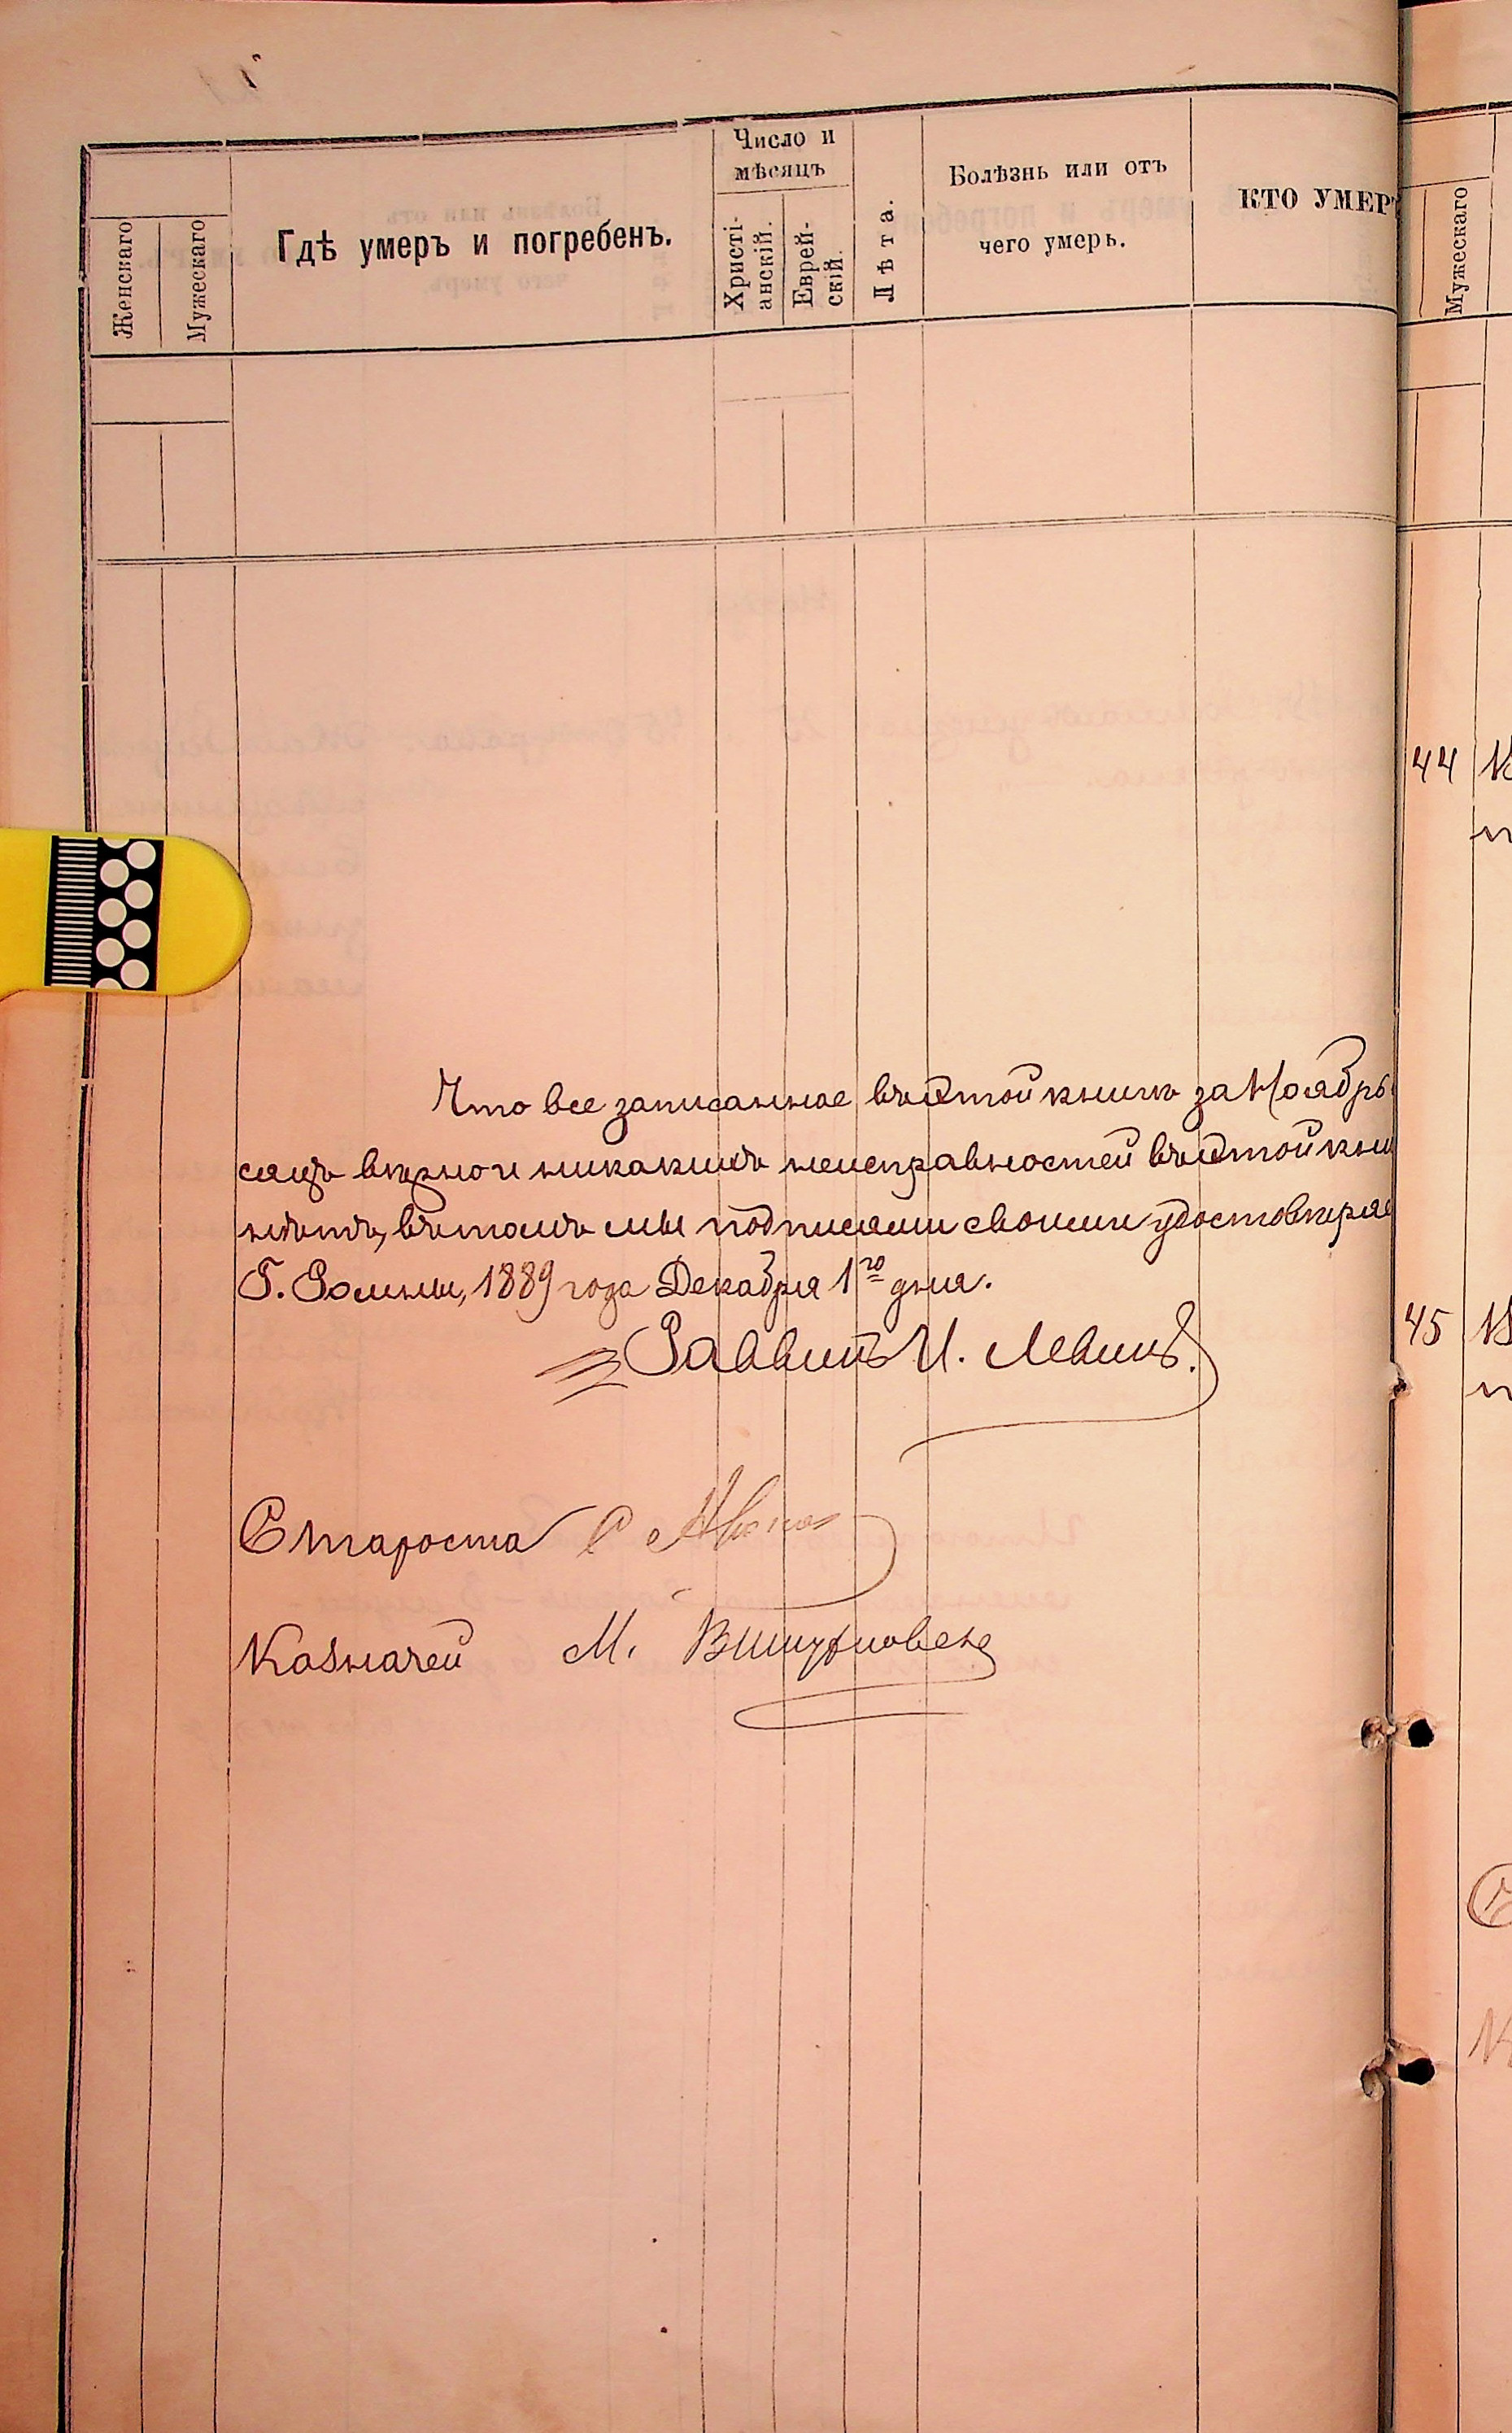 Женскаго
Мужескаго
Гдѣ умеръ и погребенъ.
Число и
мѣсяцъ
Христі-
анскій.
Еврей-
скій.
Лѣта.
Болѣзнь или отъ
чего умеръ.
КТО УМЕР
Мужескаго
Что все записанное въ этой книгѣ за Ноябрь
сяцъ вѣрно и никакихъ неисправностей въ этой кни
нѣтъ, въ томъ мы подписями своими удостовѣряе
Г. Ромны, 1889 года Декабря 1го дня.
Раввинъ И. Левинъ.
Староста
Казначей М.
44
45